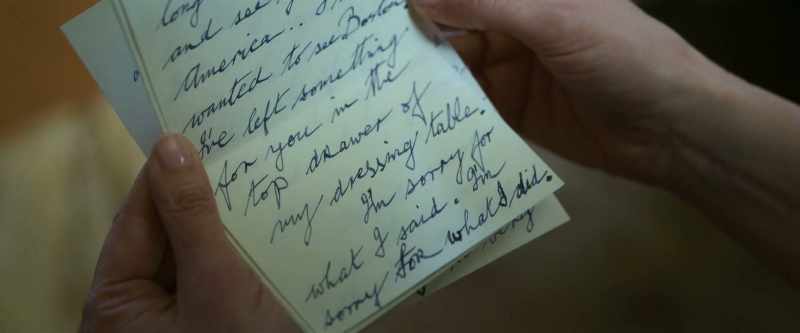 long
and see
America..
wanted to see Boston
I've left something
for you in the
top drawer of
my dressing table.
I'm sorry for
what I said. I'm
sorry for what I did.
very